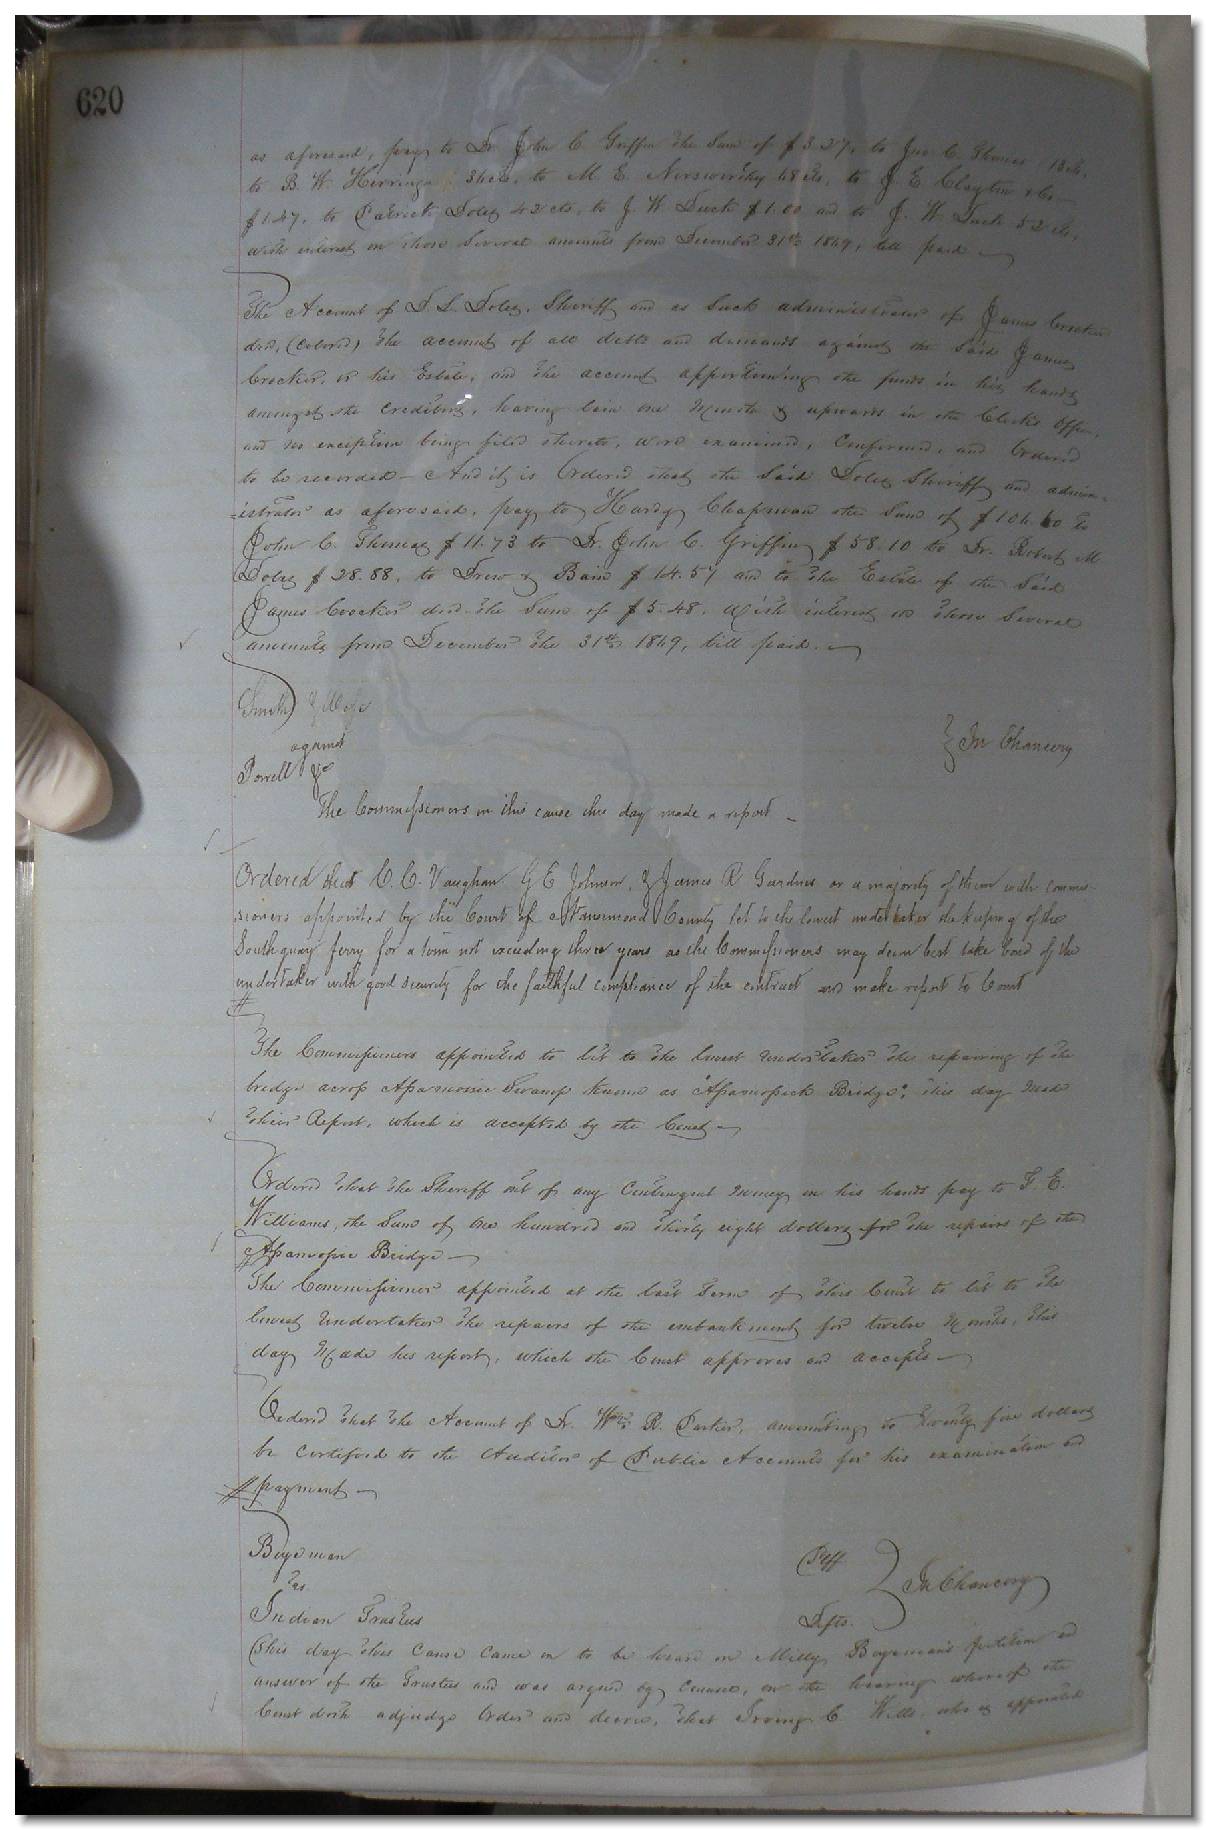 620
as aforesaid, pay to Dr. John C. Griffin the Sum of $3.27, to Jno. C. Thomas 18 cts.
to B. W. Herring 36 cts, to M. E. Norsworthy 48 cts, to J. E. Clayton & Co
$1.47, to Patrick Doles 42 cts, to J. W. Duck $1.00 and to J. W. Duck 52 cts,
with interest on those Several amounts from December 31st 1849, till paid
The Account of Doles, Sheriff and as Such administrator of James Crocker
decd, (Colored) the account of all debts and demands against the Said James
Crocker, or his Estate, and the account apportioning the funds in his hands
amongst the creditors, having lain one Month & upwards in the Clerks Office,
and no exception being filed thereto, were examined, Confirmed, and Ordered
to be recorded – And it is Ordered that the Said Doles Sheriff and admin-
-istrator as aforesaid, pay to Hardy Chapman the Sum of to
John C. Thomas $11.73 to Dr. John C. Griffin $58.10 to Dr. Robert M
Doles $28.88, to Drew & Bain $14.57 and to the Estate of the Said
James Crocker decd. the Sum of $5.48. With interest on those Several
amounts from December the 31st 1849, till paid.
Smith & Wife
against
Powell &c
} In Chancery
The Commissioners in this cause this day made a report
Ordered that C. C. Vaughan G E Johnson, & James R Gardner or a majority of them with commis-
sioners appointed by the Court of Nansemond County let to the lowest undertaker the keeping of the
Southquay ferry for a term not exceeding three years as the Commissioners may deem best take bond of the
undertaker with good security for the faithful compliance of the contract and make report to Court
The Commissioners appointed to let to the lowest undertaker the repairing of the
bridge across Swamp known as "Bridge", this day Made
their Report, which is accepted by the Court
Ordered that the Sheriff out of any Contingent money in his hands pay to E.
Williams, the Sum of One hundred and thirty eight dollars for the repairs of the
Bridge
The Commissioner appointed at the last Term of this Court to let to the
lowest undertaker the repairs of the embankment for twelve Months, this
day Made his report, which the Court approves and accepts
Ordered that the Account of Dr. Wm. R. Parker, amounting to twenty five dollars
be certified to the Auditor of Public Accounts for his examination and
payment
Bozeman Plff
vs. } In Chancery
Indian Trustees Dfts.
This day this Cause came on to be heard on Milly Bozeman's petition and
answer of the Trustees and was argued by Counsel, on the hearing whereof the
Court doth adjudge Order and decree, that Irving C Wills, who is appointed